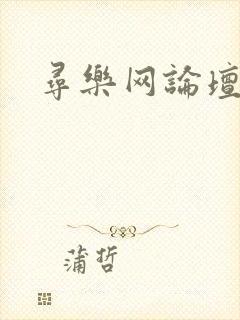 尋樂网論壇
蒲哲